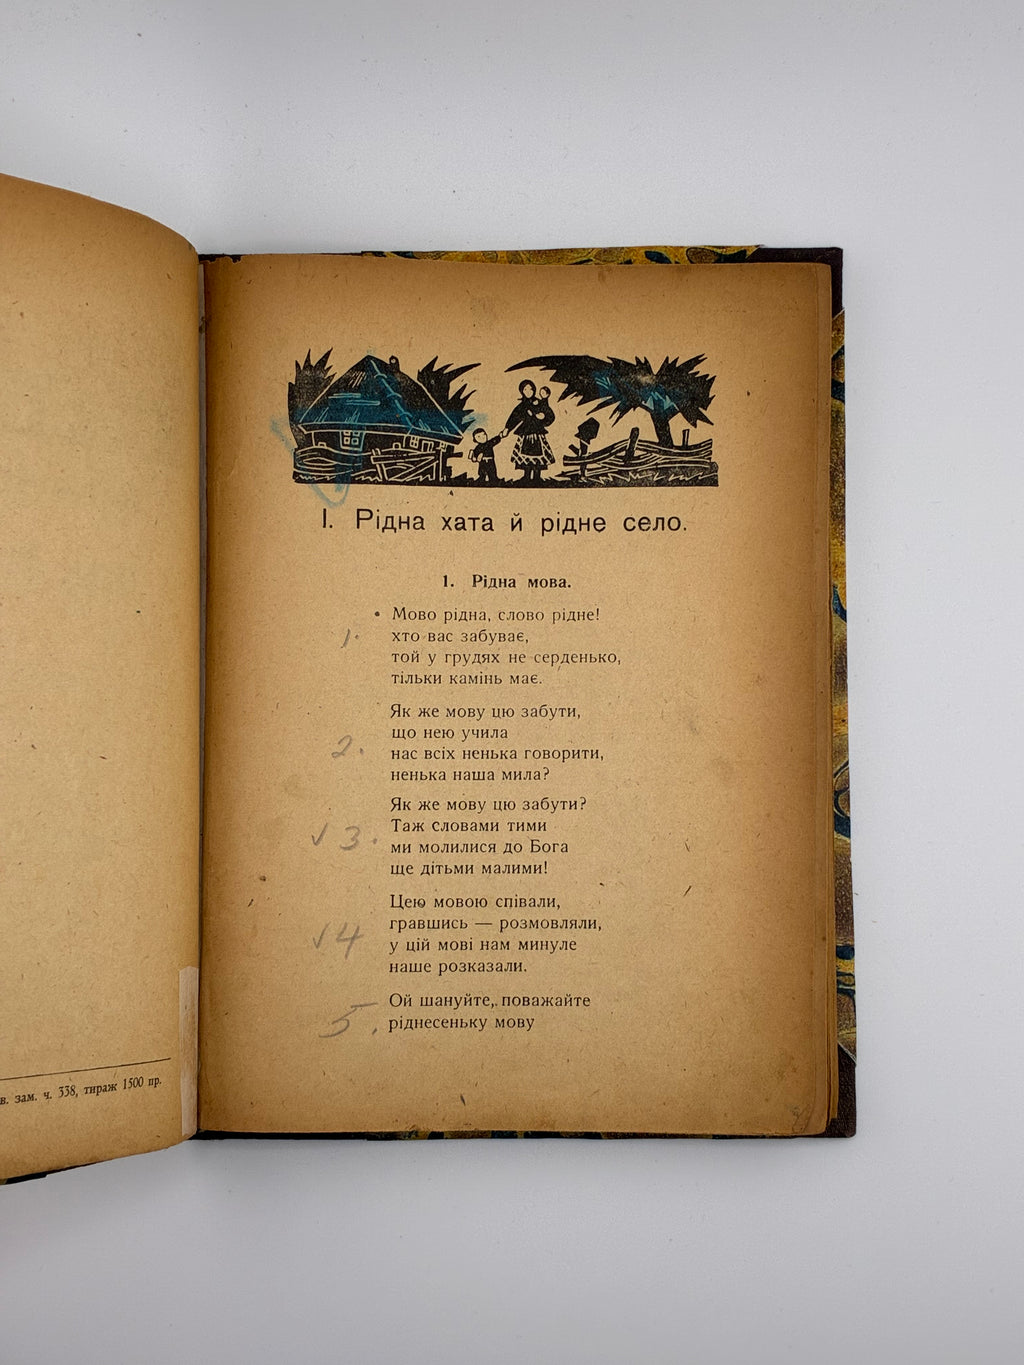 в. зам. ч. 338, тираж 1500 пр.
І. Рідна хата й рідне село.
1. Рідна мова.
Мово рідна, слово рідне!
1. хто вас забуває,
той у грудях не серденько,
тільки камінь має.
Як же мову цю забути,
що нею учила
2. нас всіх ненька говорити,
ненька наша мила?
Як же мову цю забути?
Таж словами тими
√ 3. ми молилися до Бога
ще дітьми малими!
Цею мовою співали,
гравшись — розмовляли,
√ 4 у цій мові нам минуле
наше розказали.
Ой шануйте, поважайте
5. ріднесеньку мову